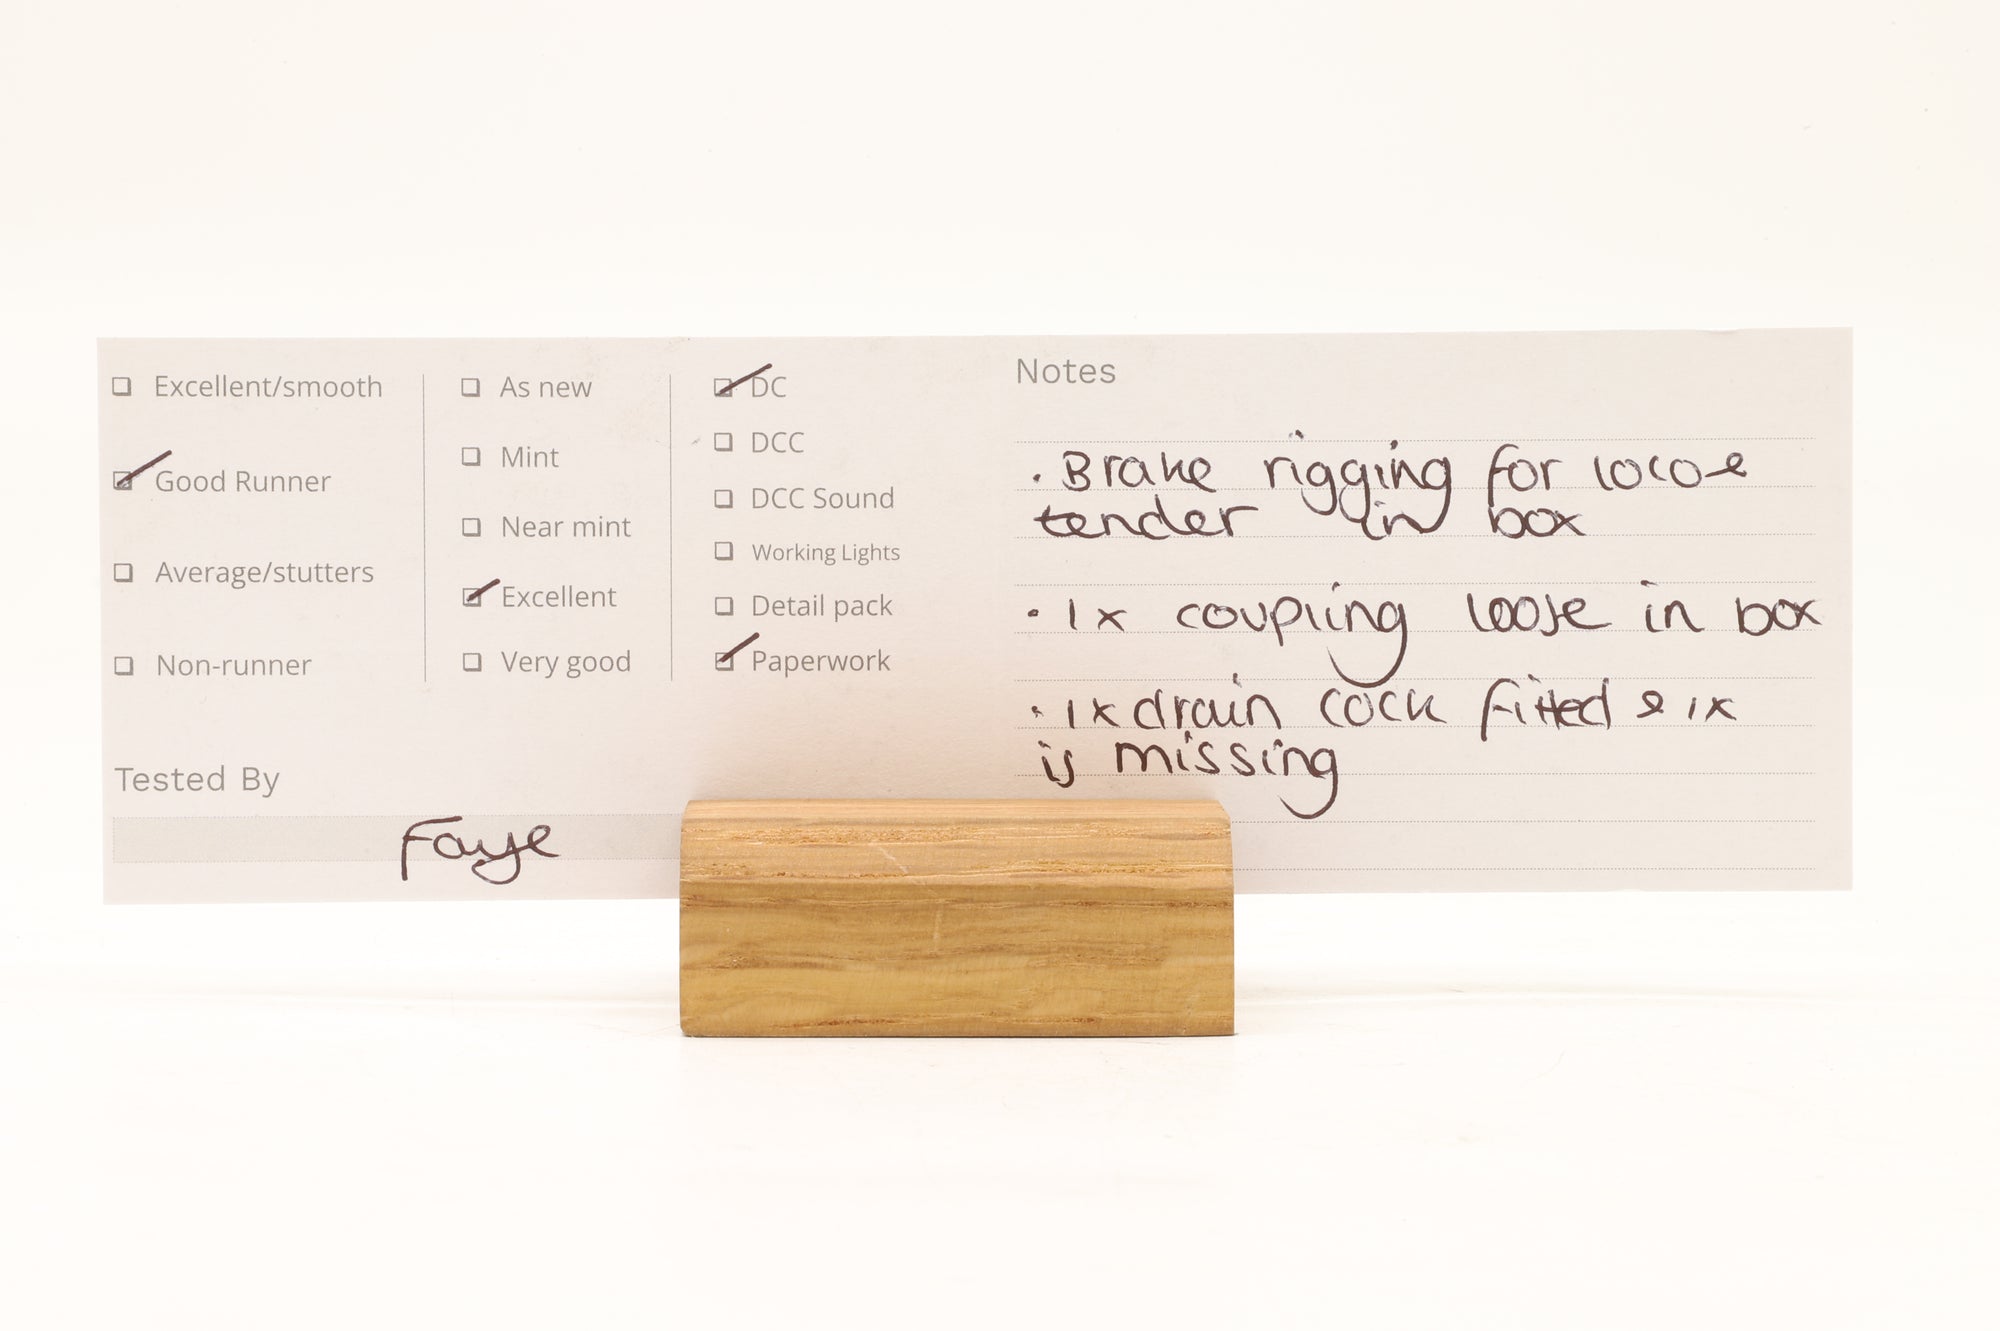 Excellent/smooth
Good Runner
Average/stutters
Non-runner
As new
Mint
Near mint
Excellent
Very good
DC
DCC
DCC Sound
Working Lights
Detail pack
Paperwork
Tested By
Faye
Notes
· Brake rigging for loco &
tender in box
· 1x coupling loose in box
· 1x drain cock fitted & 1x
is missing